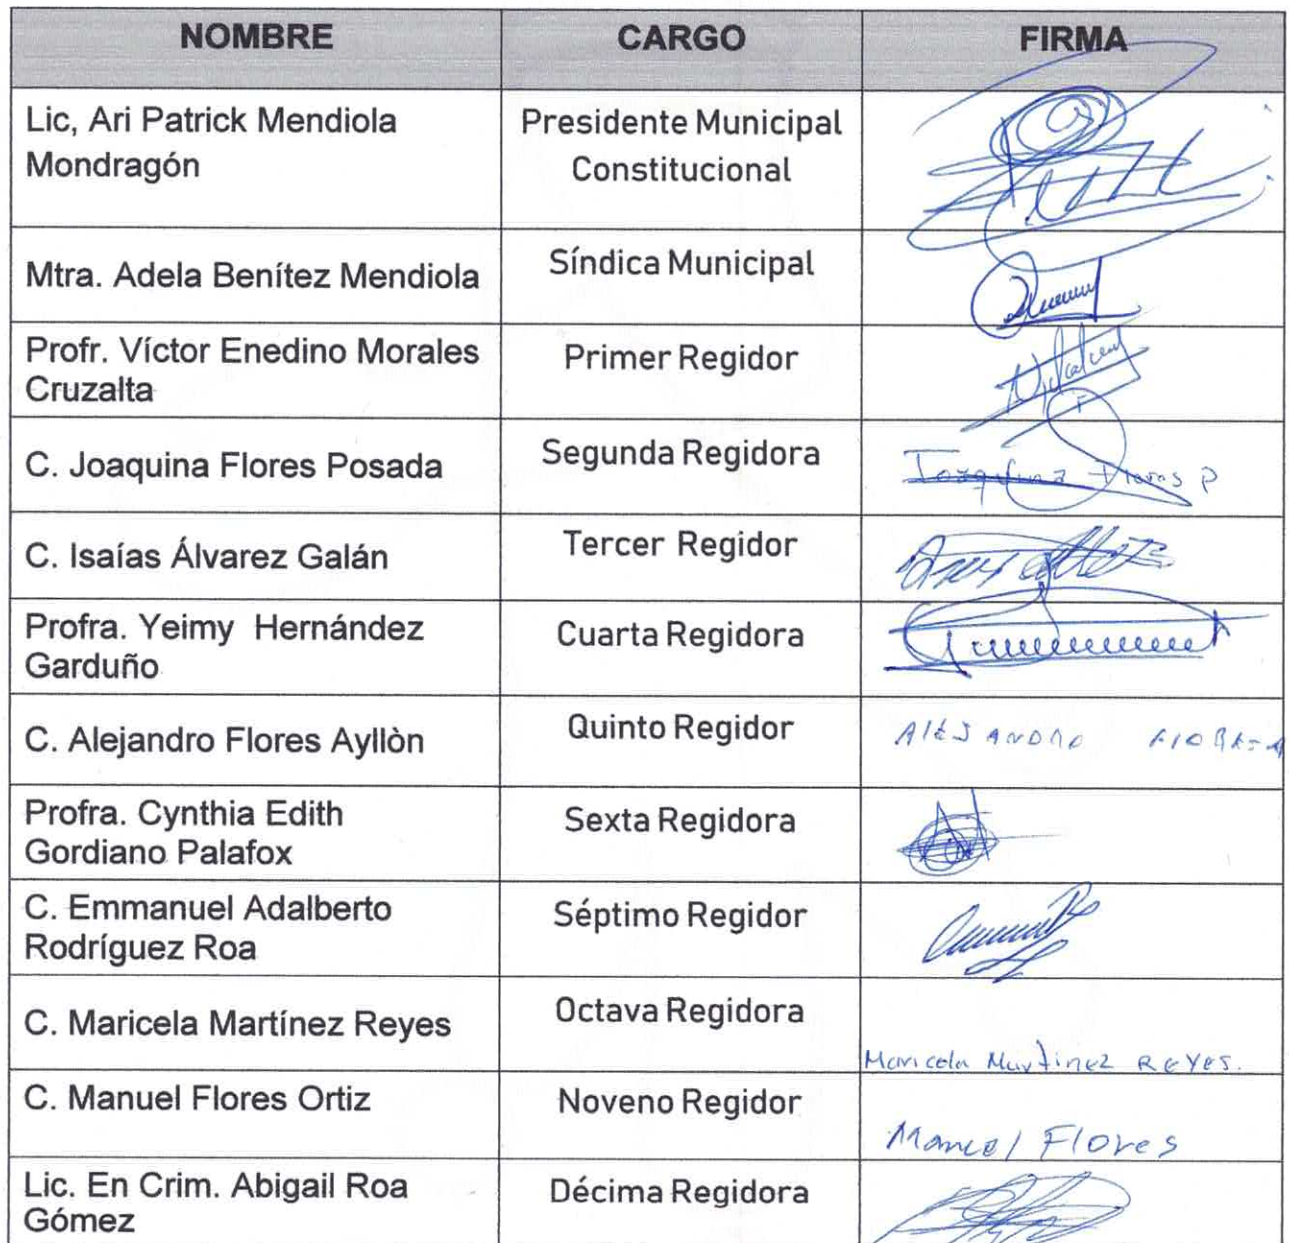 NOMBRE CARGO FIRMA
Lic, Ari Patrick Mendiola
Mondragón
Presidente Municipal
Constitucional
Mtra. Adela Benítez Mendiola
Síndica Municipal
Profr. Víctor Enedino Morales
Cruzalta
Primer Regidor
C. Joaquina Flores Posada
Segunda Regidora
Joaquina Flores P
C. Isaías Álvarez Galán
Tercer Regidor
Profra. Yeimy Hernández
Garduño
Cuarta Regidora
C. Alejandro Flores Ayllòn
Quinto Regidor
Profra. Cynthia Edith
Gordiano Palafox
Sexta Regidora
C. Emmanuel Adalberto
Rodríguez Roa
Séptimo Regidor
C. Maricela Martínez Reyes
Octava Regidora
Maricela Martinez REYES.
C. Manuel Flores Ortiz
Noveno Regidor
Manuel Flores
Lic. En Crim. Abigail Roa
Gómez
Décima Regidora